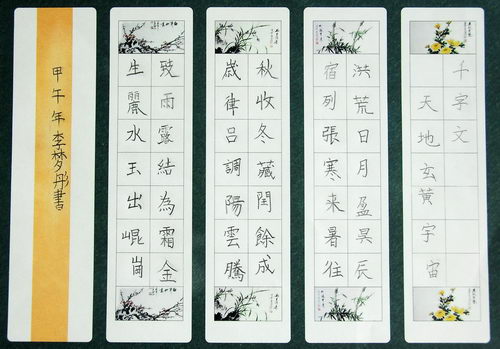 千字文
天地玄黄宇宙
洪荒日月盈昃辰
宿列張寒来暑往
秋收冬藏閏餘成
歲律呂調陽雲騰
致雨露結為霜金
生麗水玉出崐崗
甲午年李梦彤書